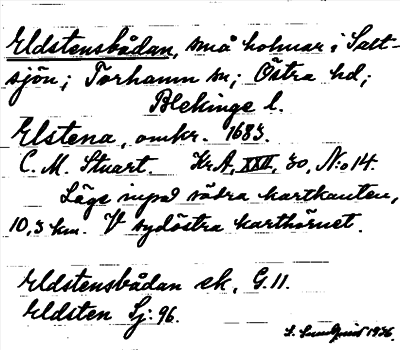 Eldstensbådan, små holmar i Salt-
sjön; Torhamn sn; Östra hd;
Blekinge l.
Elstena, omkr. 1683.
C. M. Stuart. KrA, XXII, 30, N:o 14.
Läge invid södra kartkanten,
10,3 km. V sydöstra karthörnet.
Eldstensbådan ek. G. 11.
Eldsten Sj: 96.
S. Sundquist 1936.